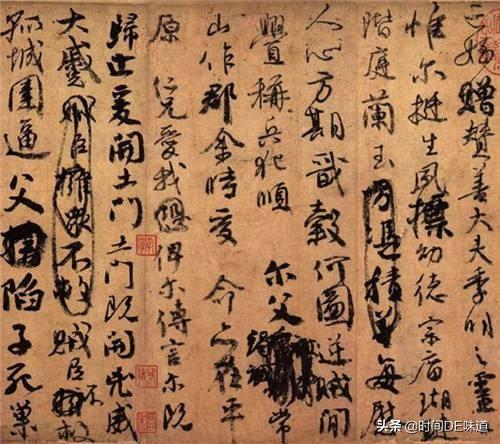 姪贈贊善大夫季明之靈
惟爾挺生夙標幼德宗廟瑚璉
階庭蘭玉方憑積善每慰
人心方期戩穀何圖逆賊閒
釁稱兵犯順 爾父竭誠常
山作郡余時受 命亦在平
原 仁兄愛我恐俾爾傳言爾既
歸止爰開土門土門既開兇威
大蹙賊臣擁眾不救賊臣不救
孤城圍逼父陷子死巢
头条 @时间DE味道